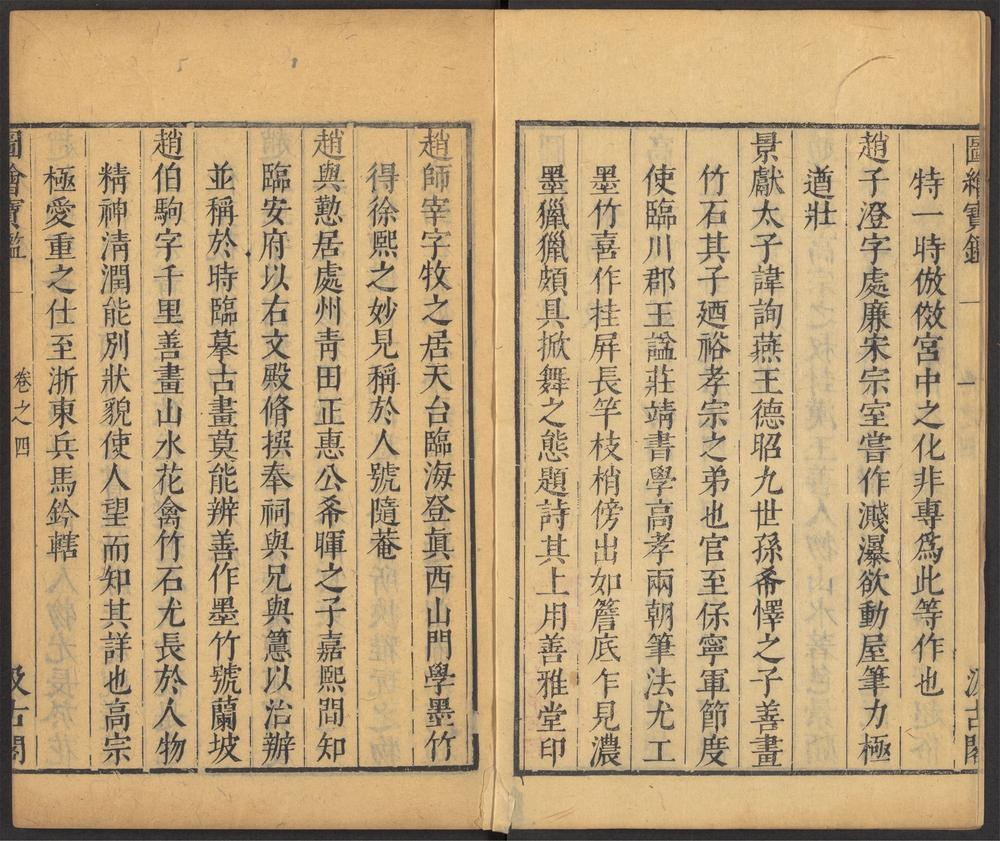 圖繪寶鑑 一 汲古閣
特一時倣傚宮中之化非專爲此等作也
趙子澄字處廉宋宗室嘗作濺瀑欲動屋筆力極
遒壯
景獻太子諱詢燕王德昭九世孫希懌之子善畫
竹石其子廼裕孝宗之弟也官至保寧軍節度
使臨川郡王謚莊靖書學高孝兩朝筆法尤工
墨竹喜作挂屏長竿枝梢傍出如簷底乍見濃
墨獵獵頗具掀舞之態題詩其上用善雅堂印
趙師宰字牧之居天台臨海登眞西山門學墨竹
得徐熙之妙見稱於人號隨菴
趙與懃居處州青田正惠公希暉之子嘉熙間知
臨安府以右文殿脩撰奉祠與兄與𥲅以治辦
並稱於時臨摹古畫莫能辨善作墨竹號蘭坡
趙伯駒字千里善畫山水花禽竹石尤長於人物
精神清潤能別狀貌使人望而知其詳也高宗
極愛重之仕至浙東兵馬鈐轄
圖繪寶鑑 卷之四 汲古閣